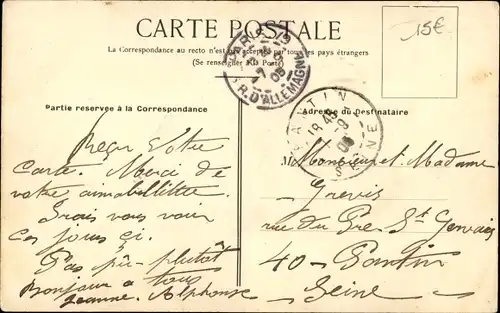 CARTE POSTALE
15€
La Correspondance au recto n'est pas acceptée par tous les pays étrangers
(Se renseigner à la Poste)
PARIS 19
R. D'ALLEMAGNE
Partie reservée à la Correspondance
Adresse du Destinataire
PANTIN
SEINE
Reçu Votre
Carte. Merci de
votre
Irais vous voir
ces jours çi.
Pas pû plutôt
Bonjour a tous
Jeanne. Alphonse
Monsieur et Madame
Grevis
rue du Pré St Gervais
40 - Pantin
Seine